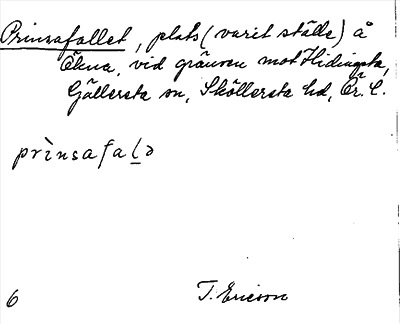 Prinsafallet, plats (varit ställe) å
Ökna, vid gränsen mot Hidingsta,
Gällersta sn, Sköllersta hd, Ör. l.
prìnsafalə
6 T. Ericson